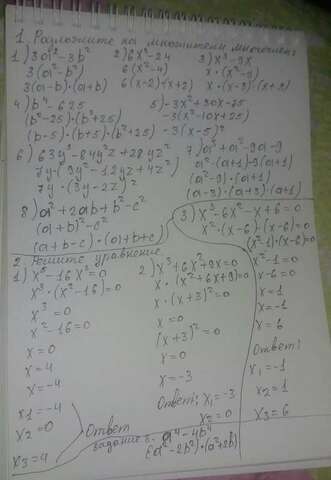 1. Разложите на множители многочлен
1) 3a² - 3b²
3(a² - b²)
3(a-b)·(a+b)
2) 6x² - 24
6(x² - 4)
6(x-2)·(x+2)
3) x³ - 9x
x·(x² - 9)
x·(x-3)·(x+3)
4) b⁴ - 625
(b² - 25)·(b² + 25)
(b-5)·(b+5)·(b²+25)
5) -3x² + 30x - 75
-3(x² - 10x + 25)
-3(x-5)²
6) 63y³ - 84y²z + 28yz²
7y·(9y² - 12yz + 4z²)
7y·(3y - 2z)²
7) a³ + a² - 9a - 9
a²·(a+1) - 9(a+1)
(a² - 9)·(a+1)
(a-3)·(a+3)·(a+1)
8) a² + 2ab + b² - c²
(a+b)² - c²
(a+b-c)·(a+b+c)
2. Решите уравнение
1) x⁵ - 16x³ = 0
x³·(x² - 16) = 0
x³ = 0
x² - 16 = 0
x = 0
x = 4
x = -4
x₁ = -4
x₂ = 0
x₃ = 4
Ответ
2) x³ + 6x² + 9x = 0
x·(x² + 6x + 9) = 0
x·(x+3)² = 0
x = 0
(x+3)² = 0
x = 0
x = -3
Ответ: x₁ = -3
x₂ = 0
3) x³ - 6x² - x + 6 = 0
x²·(x-6) - (x-6) = 0
(x² - 1)·(x-6) = 0
x² - 1 = 0
x - 6 = 0
x = 1
x = -1
x = 6
Ответ:
x₁ = -1
x₂ = 1
x₃ = 6
задание
a⁴ - 4b⁴
(a² - 2b²)·(a² + 2b²)